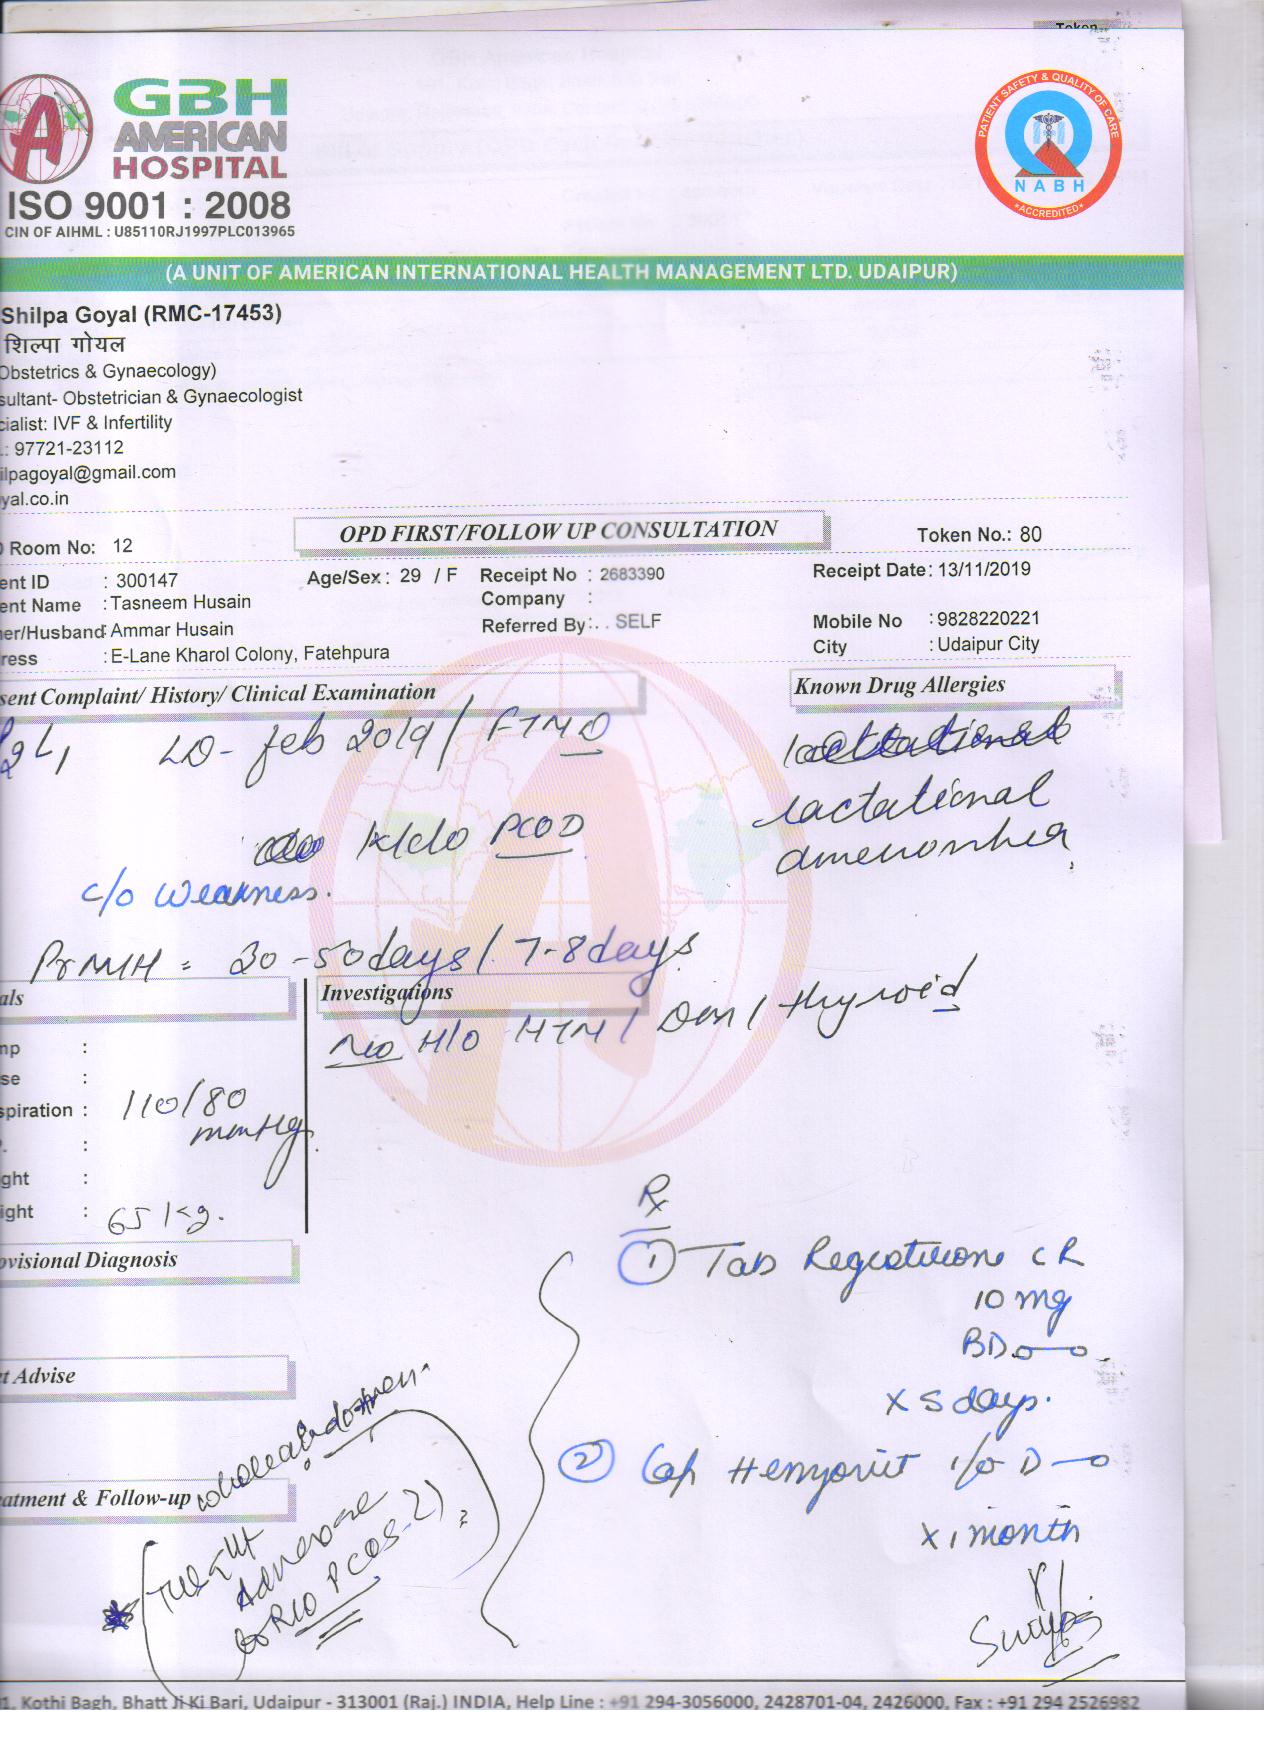 Token
GBH
AMERICAN
HOSPITAL
ISO 9001 : 2008
CIN OF AIHML : U85110RJ1997PLC013965
PATIENT SAFETY & QUALITY OF CARE
NABH
ACCREDITED
(A UNIT OF AMERICAN INTERNATIONAL HEALTH MANAGEMENT LTD. UDAIPUR)
Shilpa Goyal (RMC-17453)
शिल्पा गोयल
Obstetrics & Gynaecology)
sultant- Obstetrician & Gynaecologist
cialist: IVF & Infertility
.: 97721-23112
ilpagoyal@gmail.com
yal.co.in
OPD FIRST/FOLLOW UP CONSULTATION
Room No: 12
Token No.: 80
ent ID : 300147 Age/Sex : 29 / F Receipt No : 2683390 Receipt Date: 13/11/2019
ent Name : Tasneem Husain Company :
er/Husband: Ammar Husain Referred By: . . SELF Mobile No : 9828220221
ress : E-Lane Kharol Colony, Fatehpura City : Udaipur City
sent Complaint/ History/ Clinical Examination
Known Drug Allergies
LD- feb 2019 / FTND
lactational
amenorrhea
K/c/o PCOD
c/o Weakness.
PrMH = 30-50days / 7-8days
als
Investigations
no H/O HTN / Dm / thyroid
mp :
se :
spiration : 110/80
mmHg
. :
ght :
ight : 65 kg.
Rx
ovisional Diagnosis
① Tab Regesterone CR
10 mg
BD
x 5 days.
t Advise
② Cap
1/0 D
x 1 month
eatment & Follow-up
whole abdomen.
Advenase
to R/O PCOS-2)
1, Kothi Bagh, Bhatt Ji Ki Bari, Udaipur - 313001 (Raj.) INDIA, Help Line : +91 294-3056000, 2428701-04, 2426000, Fax : +91 294 2526982